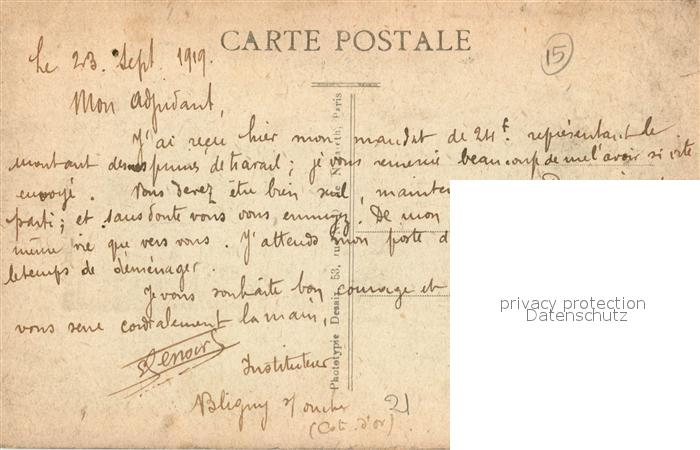 CARTE POSTALE
15
Le 23. Sept. 1919.
Mon Adjudant,
J'ai reçu hier mon mandat de 24f. représentant le
montant de mes primes de travail ; je vous remercie beaucoup de me l'avoir si vite
envoyé. Vous devez être bien seul, mainten
parti ; et sans doute vous vous ennuyez. De mon
même vie que vers vous. J'attends mon poste d
le temps de déménager.
Je vous souhaite bon courage et
vous serre cordialement la main,
Lenoir
Instituteur
Bligny s/ ouche 21
(Cote d'or)
Phototypie Desaix, 53, rue Paris
privacy protection
Datenschutz